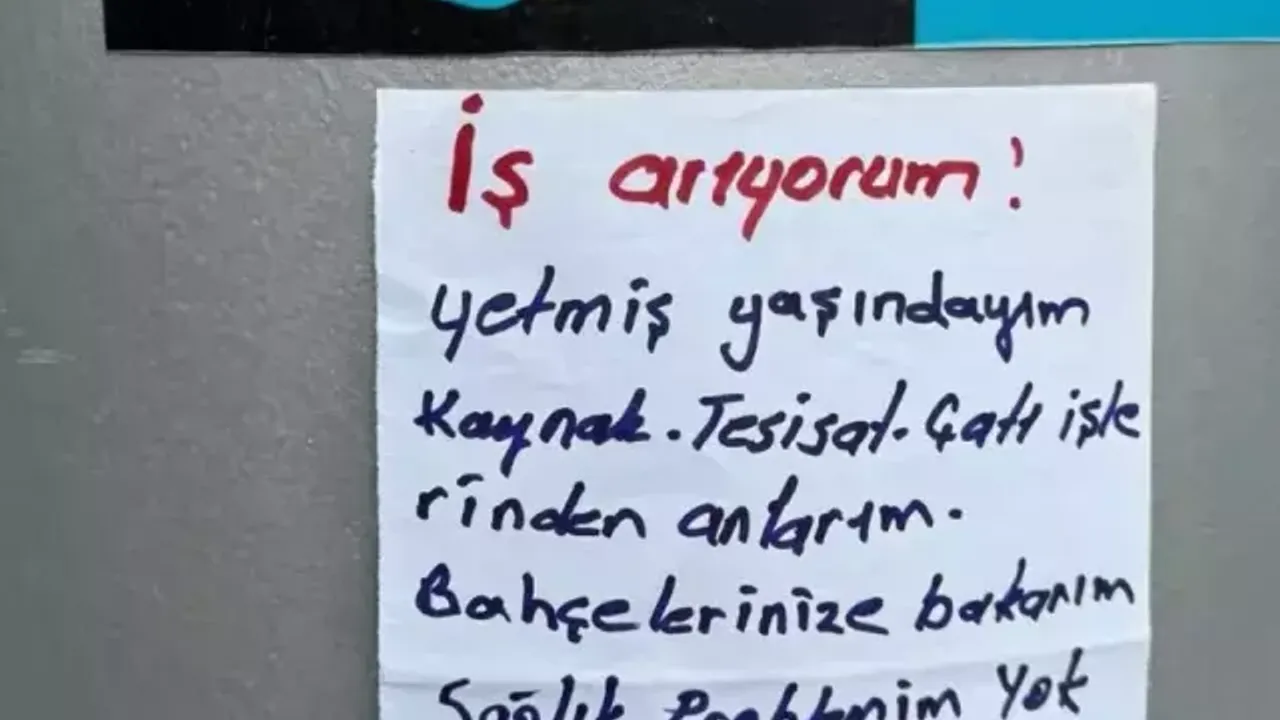 İş arıyorum!
yetmiş yaşındayım
Kaynak. Tesisat. Çatı işle
rinden anlarım.
Bahçelerinize bakarım
Sağlık Problemim Yok